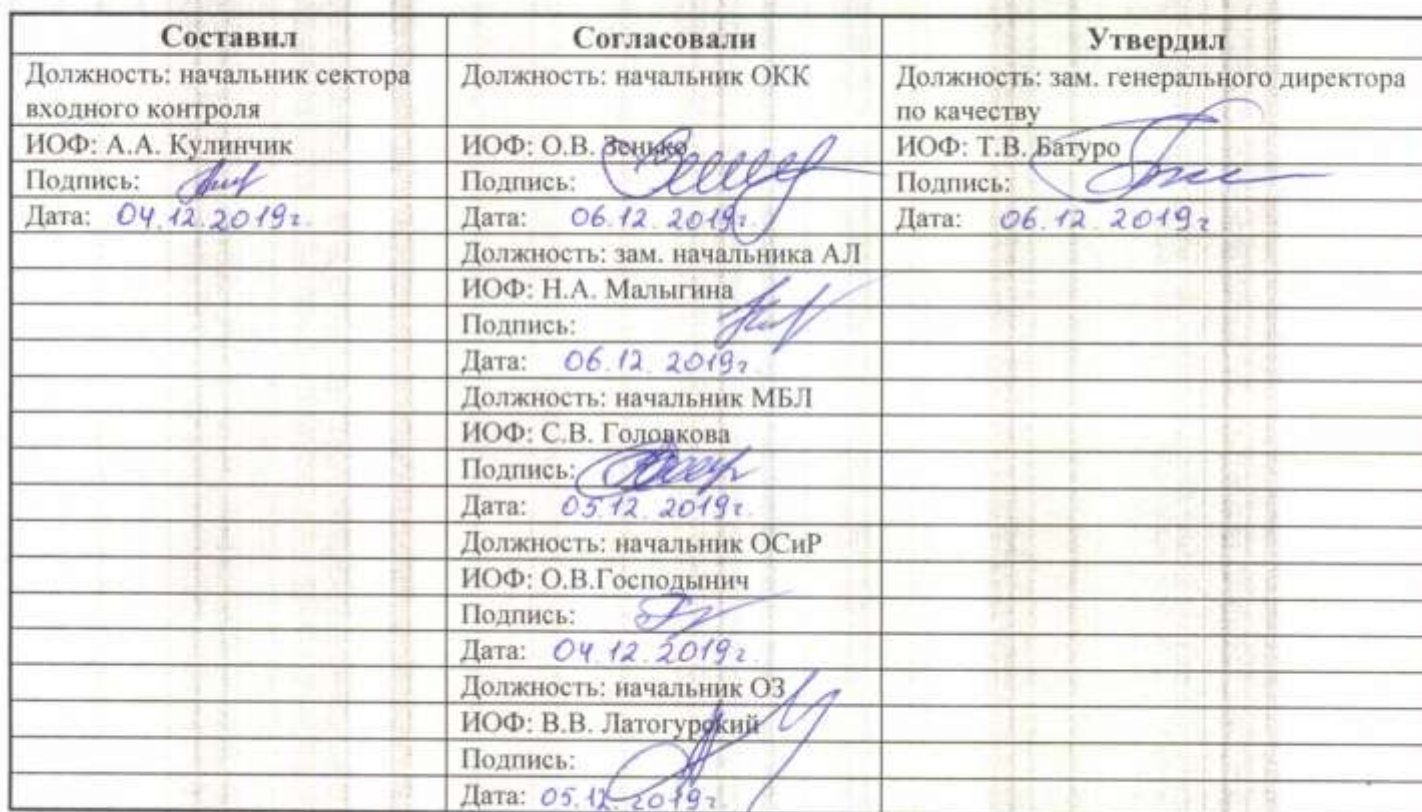 Составил Согласовали Утвердил
Должность: начальник сектора Должность: начальник ОКК Должность: зам. генерального директора
входного контроля по качеству
ИОФ: А.А. Кулинчик ИОФ: О.В. Зенько ИОФ: Т.В. Батуро
Подпись: Подпись: Подпись:
Дата: 04.12.2019г. Дата: 06.12.2019г. Дата: 06.12.2019г
Должность: зам. начальника АЛ
ИОФ: Н.А. Малыгина
Подпись:
Дата: 06.12.2019г.
Должность: начальник МБЛ
ИОФ: С.В. Головкова
Подпись:
Дата: 05.12.2019г.
Должность: начальник ОСиР
ИОФ: О.В.Господынич
Подпись:
Дата: 04.12.2019г.
Должность: начальник ОЗ
ИОФ: В.В. Латогурский
Подпись:
Дата: 05.12.2019г.